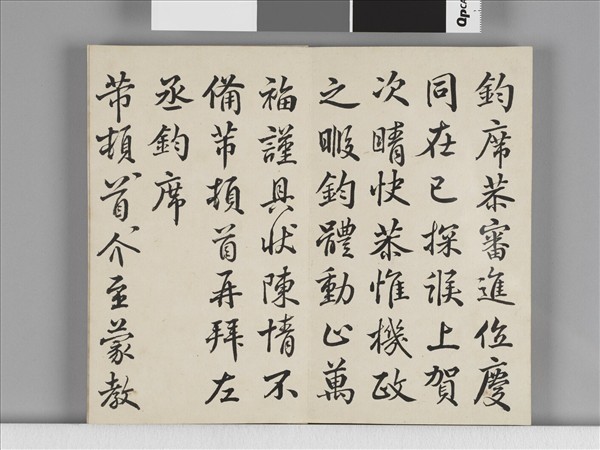 鈞席恭審進位慶
同在已探候上賀
次晴快恭惟機政
之暇鈞體動止萬
福謹具状陳情不
備芾頓首再拜左
丞鈞席
芾頓首介至蒙教